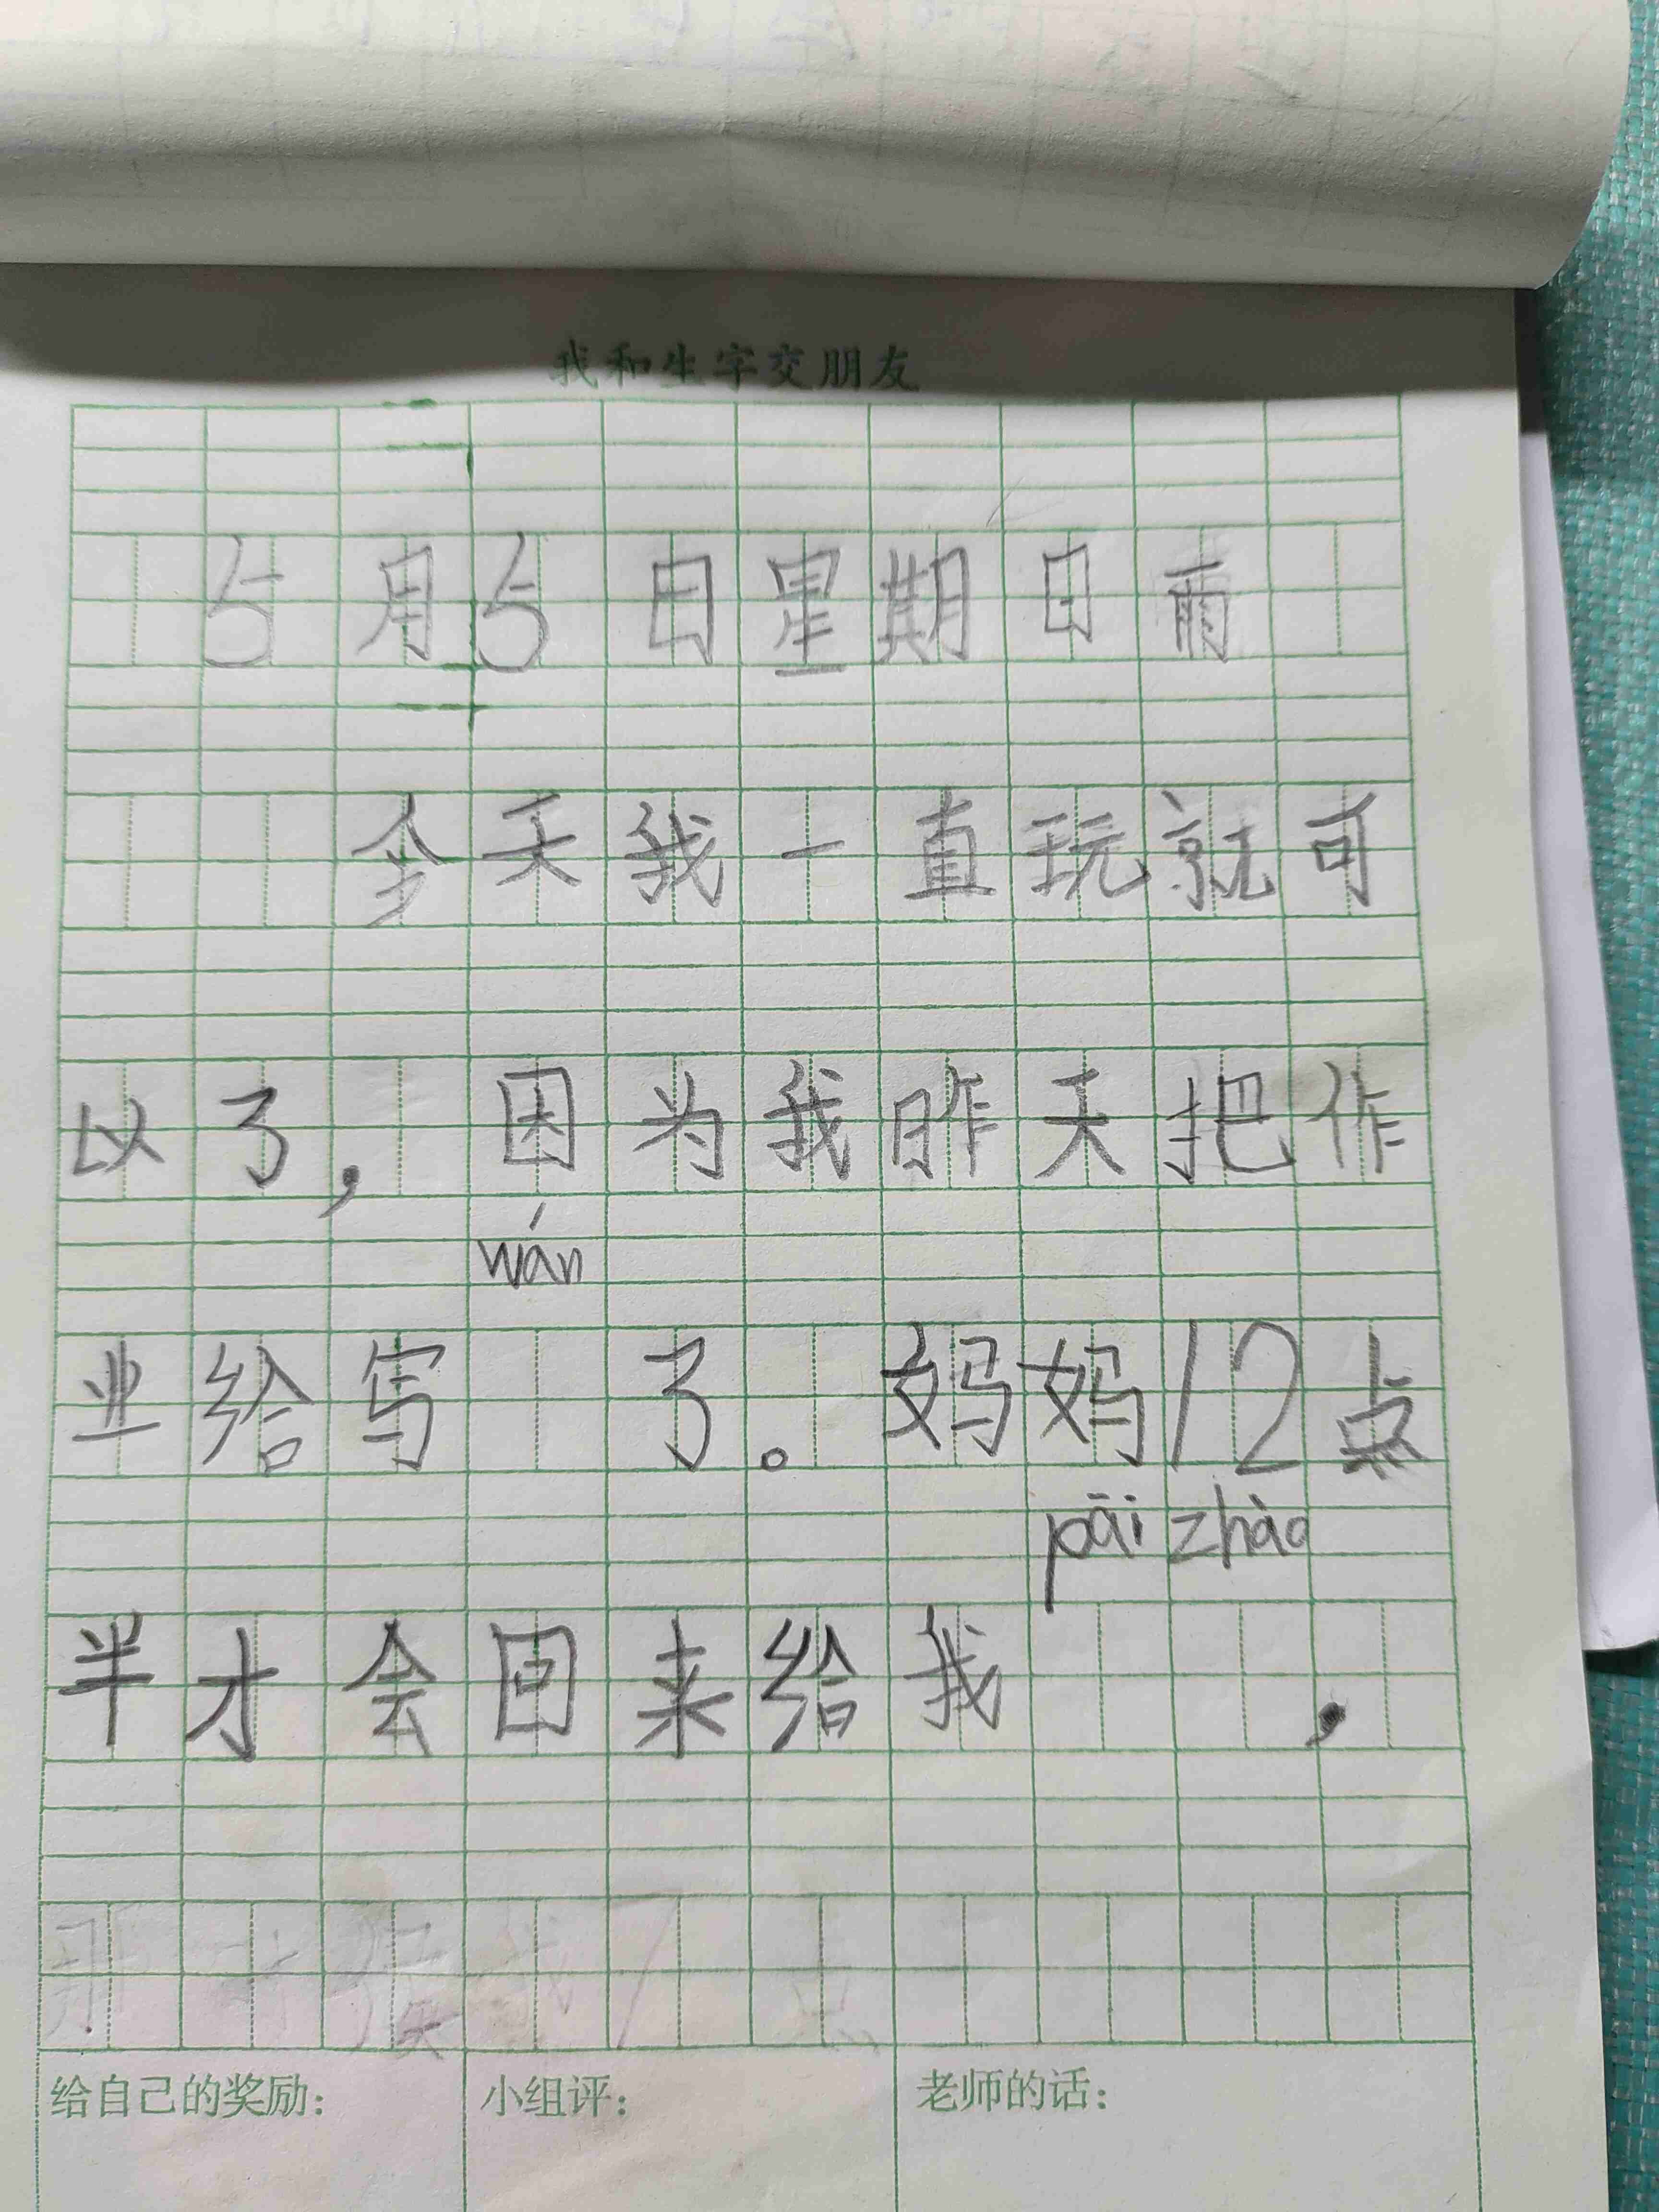 我和生字交朋友
5月5日星期日雨
今天我一直玩就可
以了，因为我昨天把作
wán
业给写 了。妈妈12点
pāi zhào
半才会回来给我 ，
给自己的奖励：
小组评：
老师的话：